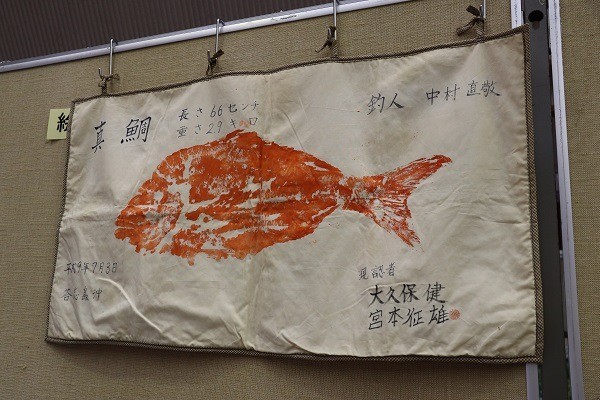 真鯛
長さ66センチ
重さ2.9キロ
釣人 中村直敬
7月3日
現認者
大久保健
宮本征雄